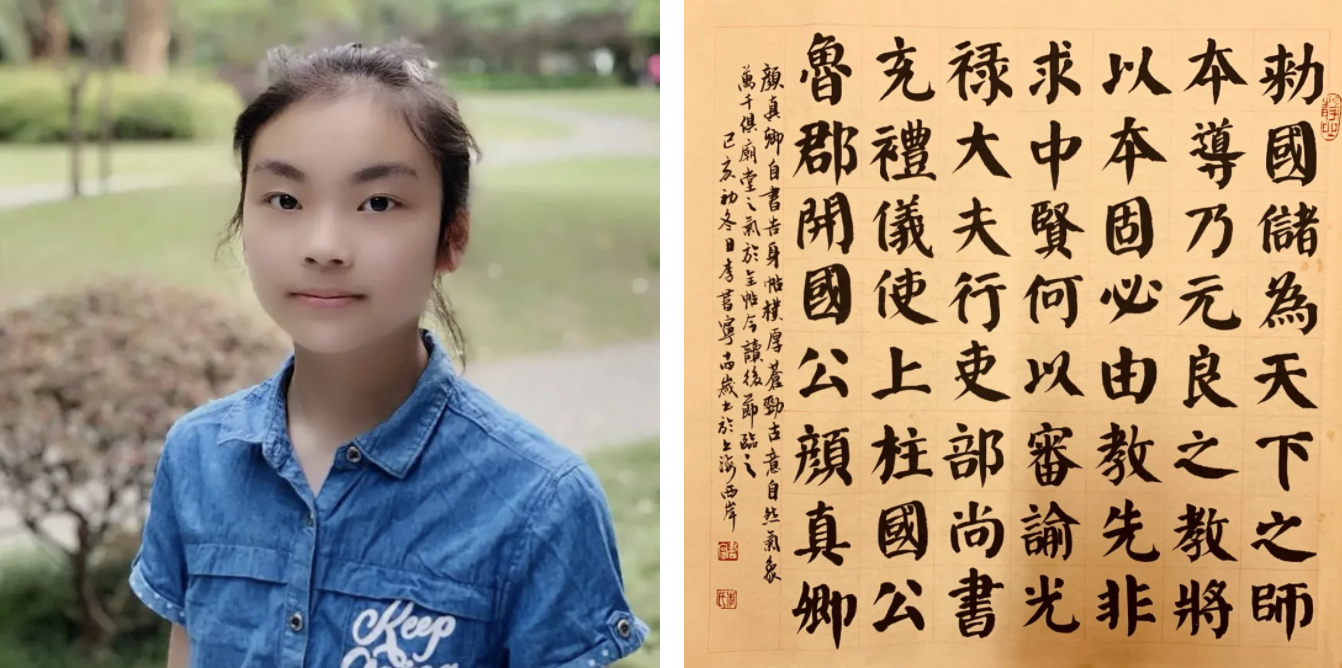 Keep
勑國儲為天下之師
本導乃元良之教將
以本固必由教先非
求中賢何以審諭光
禄大夫行吏部尚書
充禮儀使上柱國公
魯郡開國公顏真卿
顏真卿自書告身帖樸厚蒼勁古意自然氣象
萬千俱廟堂之氣於全帖今讀後節臨之
己亥初冬日李書寧十四歲书於上海西岸